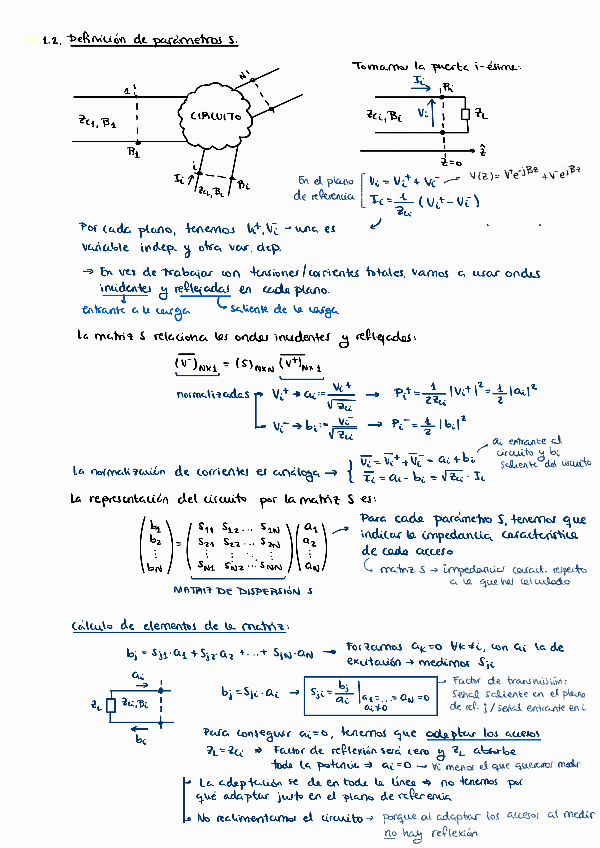 1.2. Definición de parámetros S.
Tomamos la puerta i-ésima:
1
N
CIRCUITO
Zc1, B1
B1
i
Ii
Zci, Bi
Bi
Ii
Pi
Zci, Bi
Vi
ZL
z=0
ẑ
En el plano de referencia
Vi = Vi⁺ + Vi⁻
V(z) = V⁺e^-jBz + V⁻e^jBz
Ii = 1/Zci (Vi⁺ - Vi⁻)
Por cada plano, tenemos Vi⁺, Vi⁻ → una es
variable indep. y otra var. dep.
→ En vez de trabajar con tensiones/corrientes totales, vamos a usar ondas
incidentes y reflejadas en cada plano.
Entrante a la carga
saliente de la carga
La matriz S relaciona las ondas incidentes y reflejadas:
(V⁻)Nx1 = (S)NxN (V⁺)Nx1
normalizadas
Vi⁺ → ai := Vi⁺/√Zci → Pi⁺ = 1/2Zci |Vi⁺|² = 1/2 |ai|²
Vi⁻ → bi := Vi⁻/√Zci → Pi⁻ = 1/2 |bi|²
ai entrante al
circuito y bi
saliente del circuito
La normalización de corrientes es análoga →
V̄i = V̄i⁺ + V̄i⁻ = ai + bi
Īi = ai - bi = √Zci · Ii
La representación del circuito por la matriz S es:
(b1 b2 ⋮ bN) = (S11 S12 ... S1N
S21 S22 ... S2N
⋮ ⋮ ⋱ ⋮
SN1 SN2 ... SNN) (a1 a2 ⋮ aN)
MATRIZ DE DISPERSIÓN S
Para cada parámetro S, tenemos que
indicar la impedancia característica
de cada acceso
matriz S → impedancias caract. respecto
a la que has calculado
Cálculo de elementos de la matriz:
bj = Sj1·a1 + Sj2·a2 + ... + SjN·aN → Forzamos ak=0 ∀k≠i, con ai la de
excitación → medimos Sji
ai
ZL
Zci, Bi
bi
bj = Sji·ai → Sji = bj/ai | a1=...=aN=0 ai≠0
Factor de transmisión:
Señal saliente en el plano
de ref. j / señal entrante en i
Para conseguir ai=0, tenemos que adaptar los accesos
ZL = Zci ⇒ Factor de reflexión será cero y ZL absorbe
toda la potencia → ai=0 → ∀i menos el que queremos medir
La adaptación se da en toda la línea → no tenemos por
qué adaptar justo en el plano de referencia
No realimentamos el circuito → porque al adaptar los accesos al medir
no hay reflexión